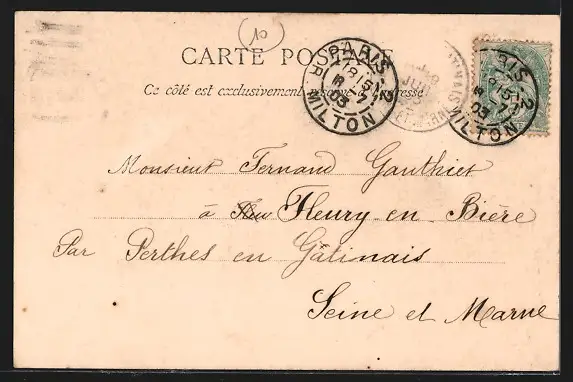 10
CARTE POSTALE
Ce côté est exclusivement réservé à l'adresse
PARIS 2
8 15
8 -7
03
R. MILTON
PARIS 2
8 15
-7
03
MILTON
Monsieur Fernand Gauthier
à Fleury en Bière
Par Perthes en Gâtinais
Seine et Marne